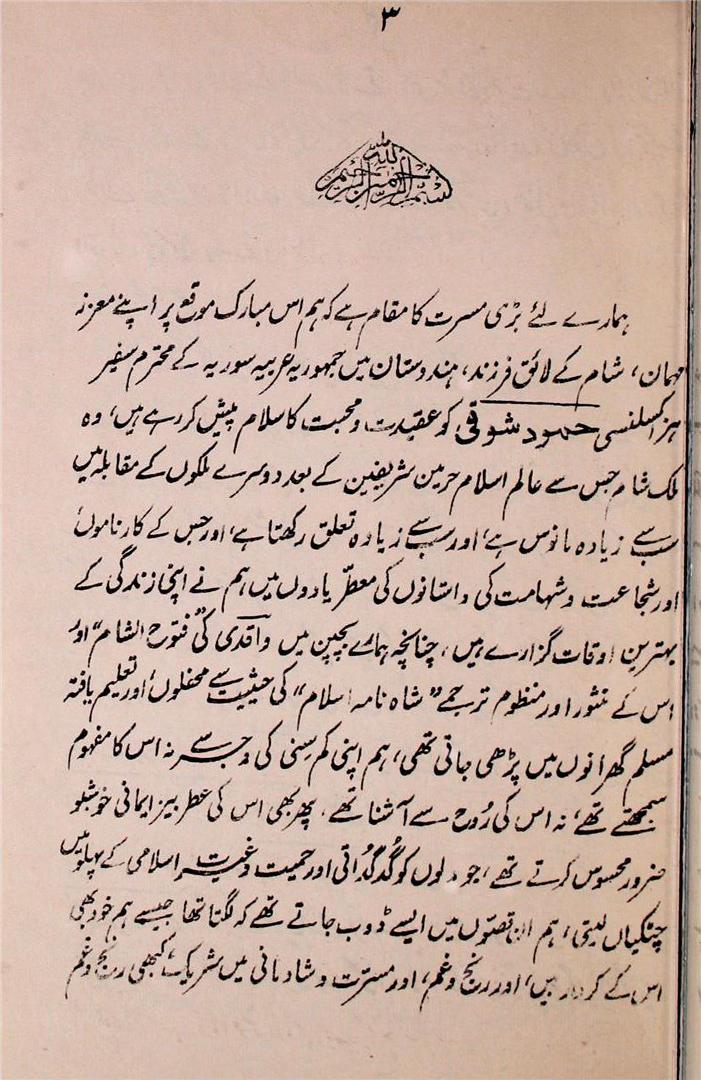 ۳
بسم اللہ الرحمن الرحیم
ہمارے لئے بڑی مسرت کا مقام ہے کہ ہم اس مبارک موقع پر اپنے معزز
مہمان، شام کے لائق فرزند، ہندوستان میں جمہوریہ عربیہ سوریہ کے محترم سفیر
ہز اکسلنسی حمود شوقی کو عقیدت و محبت کا سلام پیش کر رہے ہیں، وہ
ملک شام جس سے عالم اسلام حرمین شریفین کے بعد دوسرے ملکوں کے مقابلہ میں
سب سے زیادہ مانوس ہے، اور سب سے زیادہ تعلق رکھتا ہے، اور جس کے کارناموں
اور شجاعت و شہامت کی داستانوں کی معطّر یادوں میں ہم نے اپنی زندگی کے
بہترین اوقات گزارے ہیں، چنانچہ ہمارے بچپن میں واقدی کی "فتوح الشام" اور
اس کے منثور اور منظوم ترجمے "شاہ نامہ اسلام" کی حیثیت سے محفلوں اور تعلیم یافتہ
مسلم گھرانوں میں پڑھی جاتی تھی، ہم اپنی کم سنی کی وجہ سے نہ اس کا مفہوم
سمجھتے تھے، نہ اس کی رُوح سے آشنا تھے، پھر بھی اس کی عطر بیز ایمانی خوشبو
ضرور محسوس کرتے تھے، جو دلوں کو گُدگُداتی اور حمیت و غیرت اسلامی کے پہلو میں
چٹکیاں لیتی، ہم ان قصّوں میں ایسے ڈوب جاتے تھے کہ لگتا تھا جیسے ہم خود بھی
اس کے کردار ہیں، اور رنج و غم، اور مسرّت و شادمانی میں شریک، کبھی رنج و غم